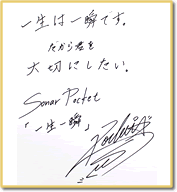 一生は一瞬です。
だから君を
大切にしたい。
Sonar Pocket
「一生一瞬」